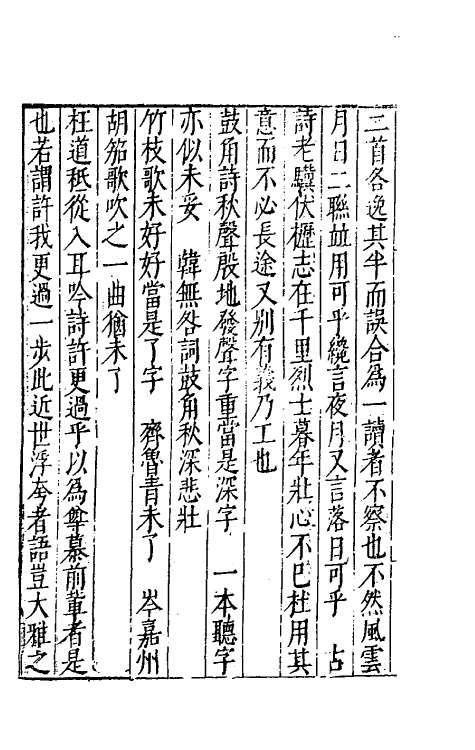 二首各逸其半而誤合為一讀者不察也不然風雲
月日二聯並用可乎纔言夜月又言落日可乎　古
詩老驥伏櫪志在千里烈士暮年壯心不已杜用其
意而不必長途又別有義乃工也
鼓角詩秋聲殷地發聲字重當是深字　一本聽字
亦似未妥　韓無咎詞鼓角秋深悲壯
竹枝歌未好好當是了字　齊魯青未了　岑嘉州
胡笳歌吹之一曲猶未了
枉道秪從入耳吟詩許更過乎以為尊慕前輩者是
也若謂許我更過一步此近世浮夸者語豈大雅之